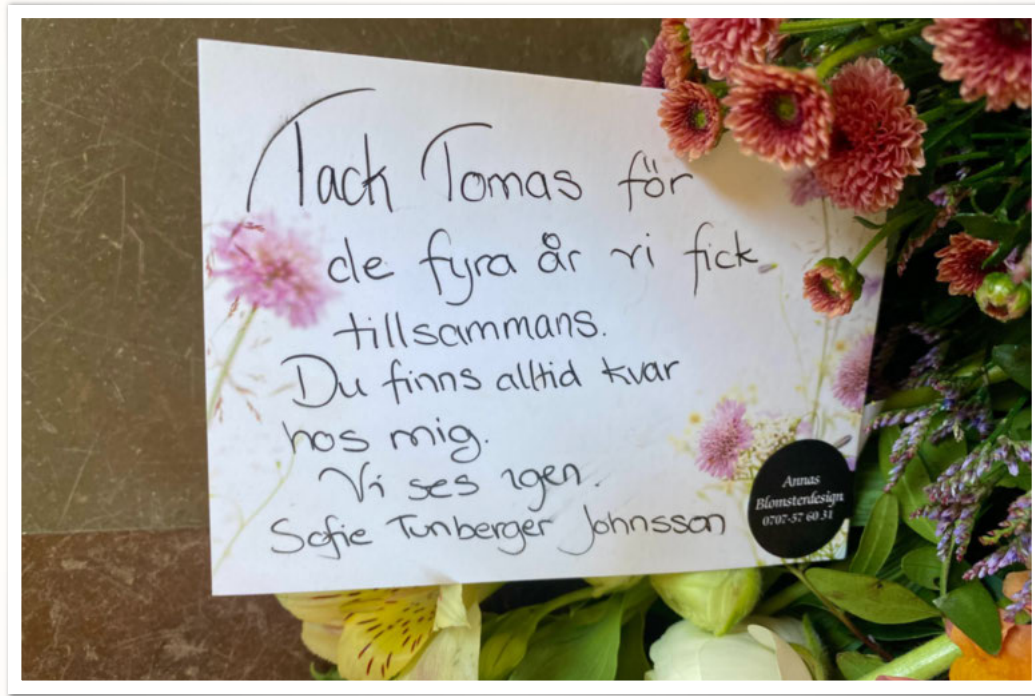 Tack Tomas för
de fyra år vi fick
tillsammans.
Du finns alltid kvar
hos mig.
Vi ses igen.
Sofie Tunberger Johnsson
Annas
Blomsterdesign
0707-57 60 31